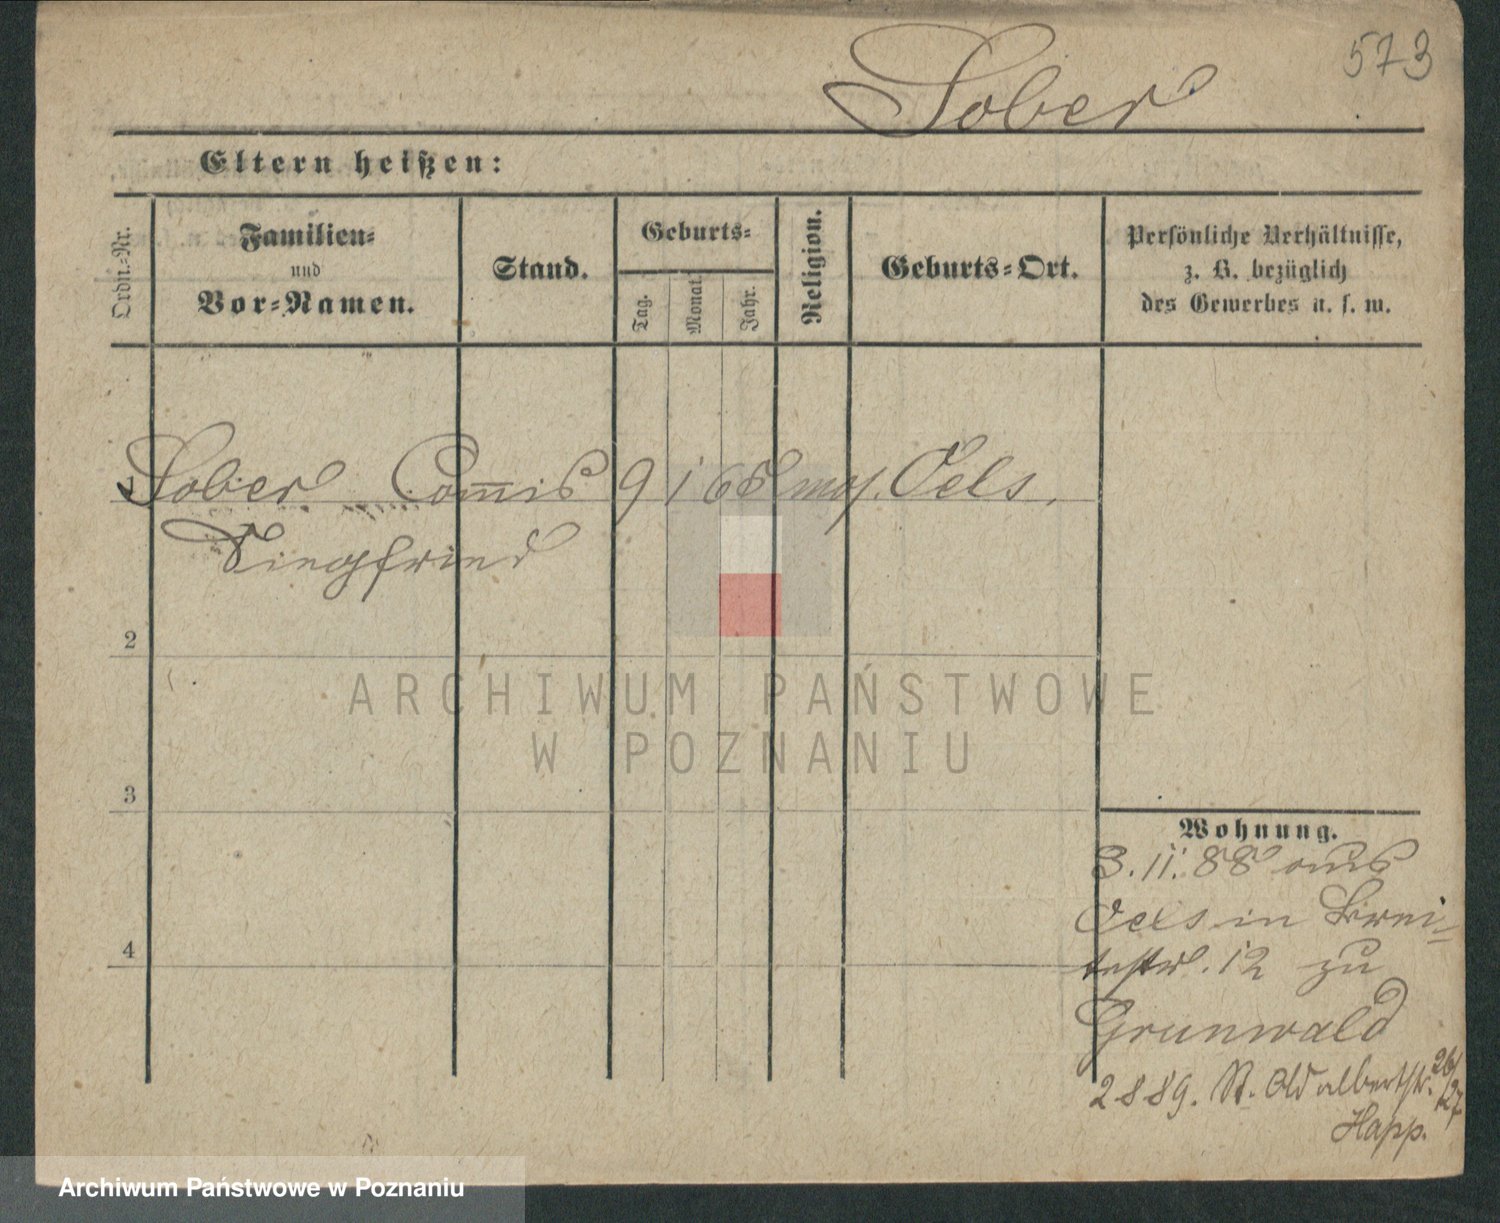 573
Sober
Eltern heißen:
Ordn.-Nr.
Familien-
und
Vor-Namen.
Stand.
Geburts-
Tag.
Monat.
Jahr.
Religion.
Geburts-Ort.
Persönliche Verhältnisse,
z. B. bezüglich
des Gewerbes u. s. w.
1 Sober Commis 9 1 68 mos. Oels.
Siegfried
2
3
4
Wohnung.
3. 11. 88 aus
Oels in Brei-
testr. 12 zu
Grunwald
2 8 89. St. Adalbertstr. 26/27
Happ.
ARCHIWUM PAŃSTWOWE
W POZNANIU
Archiwum Państwowe w Poznaniu